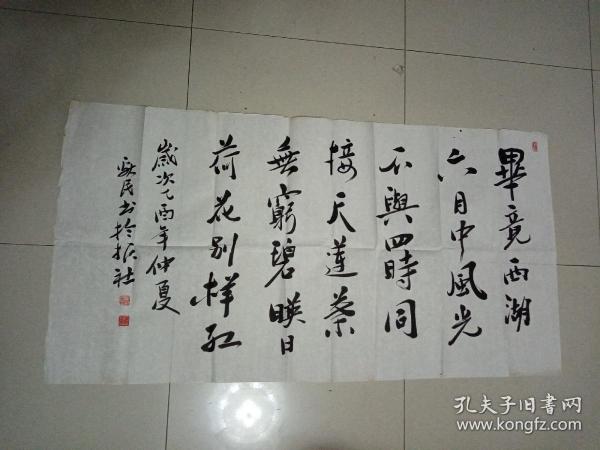 畢竟西湖
六月中風光
不與四時同
接天蓮葉
無窮碧暎日
荷花别樣紅
歲次乙酉年仲夏
民书於振社
孔夫子旧書网
www.kongfz.com